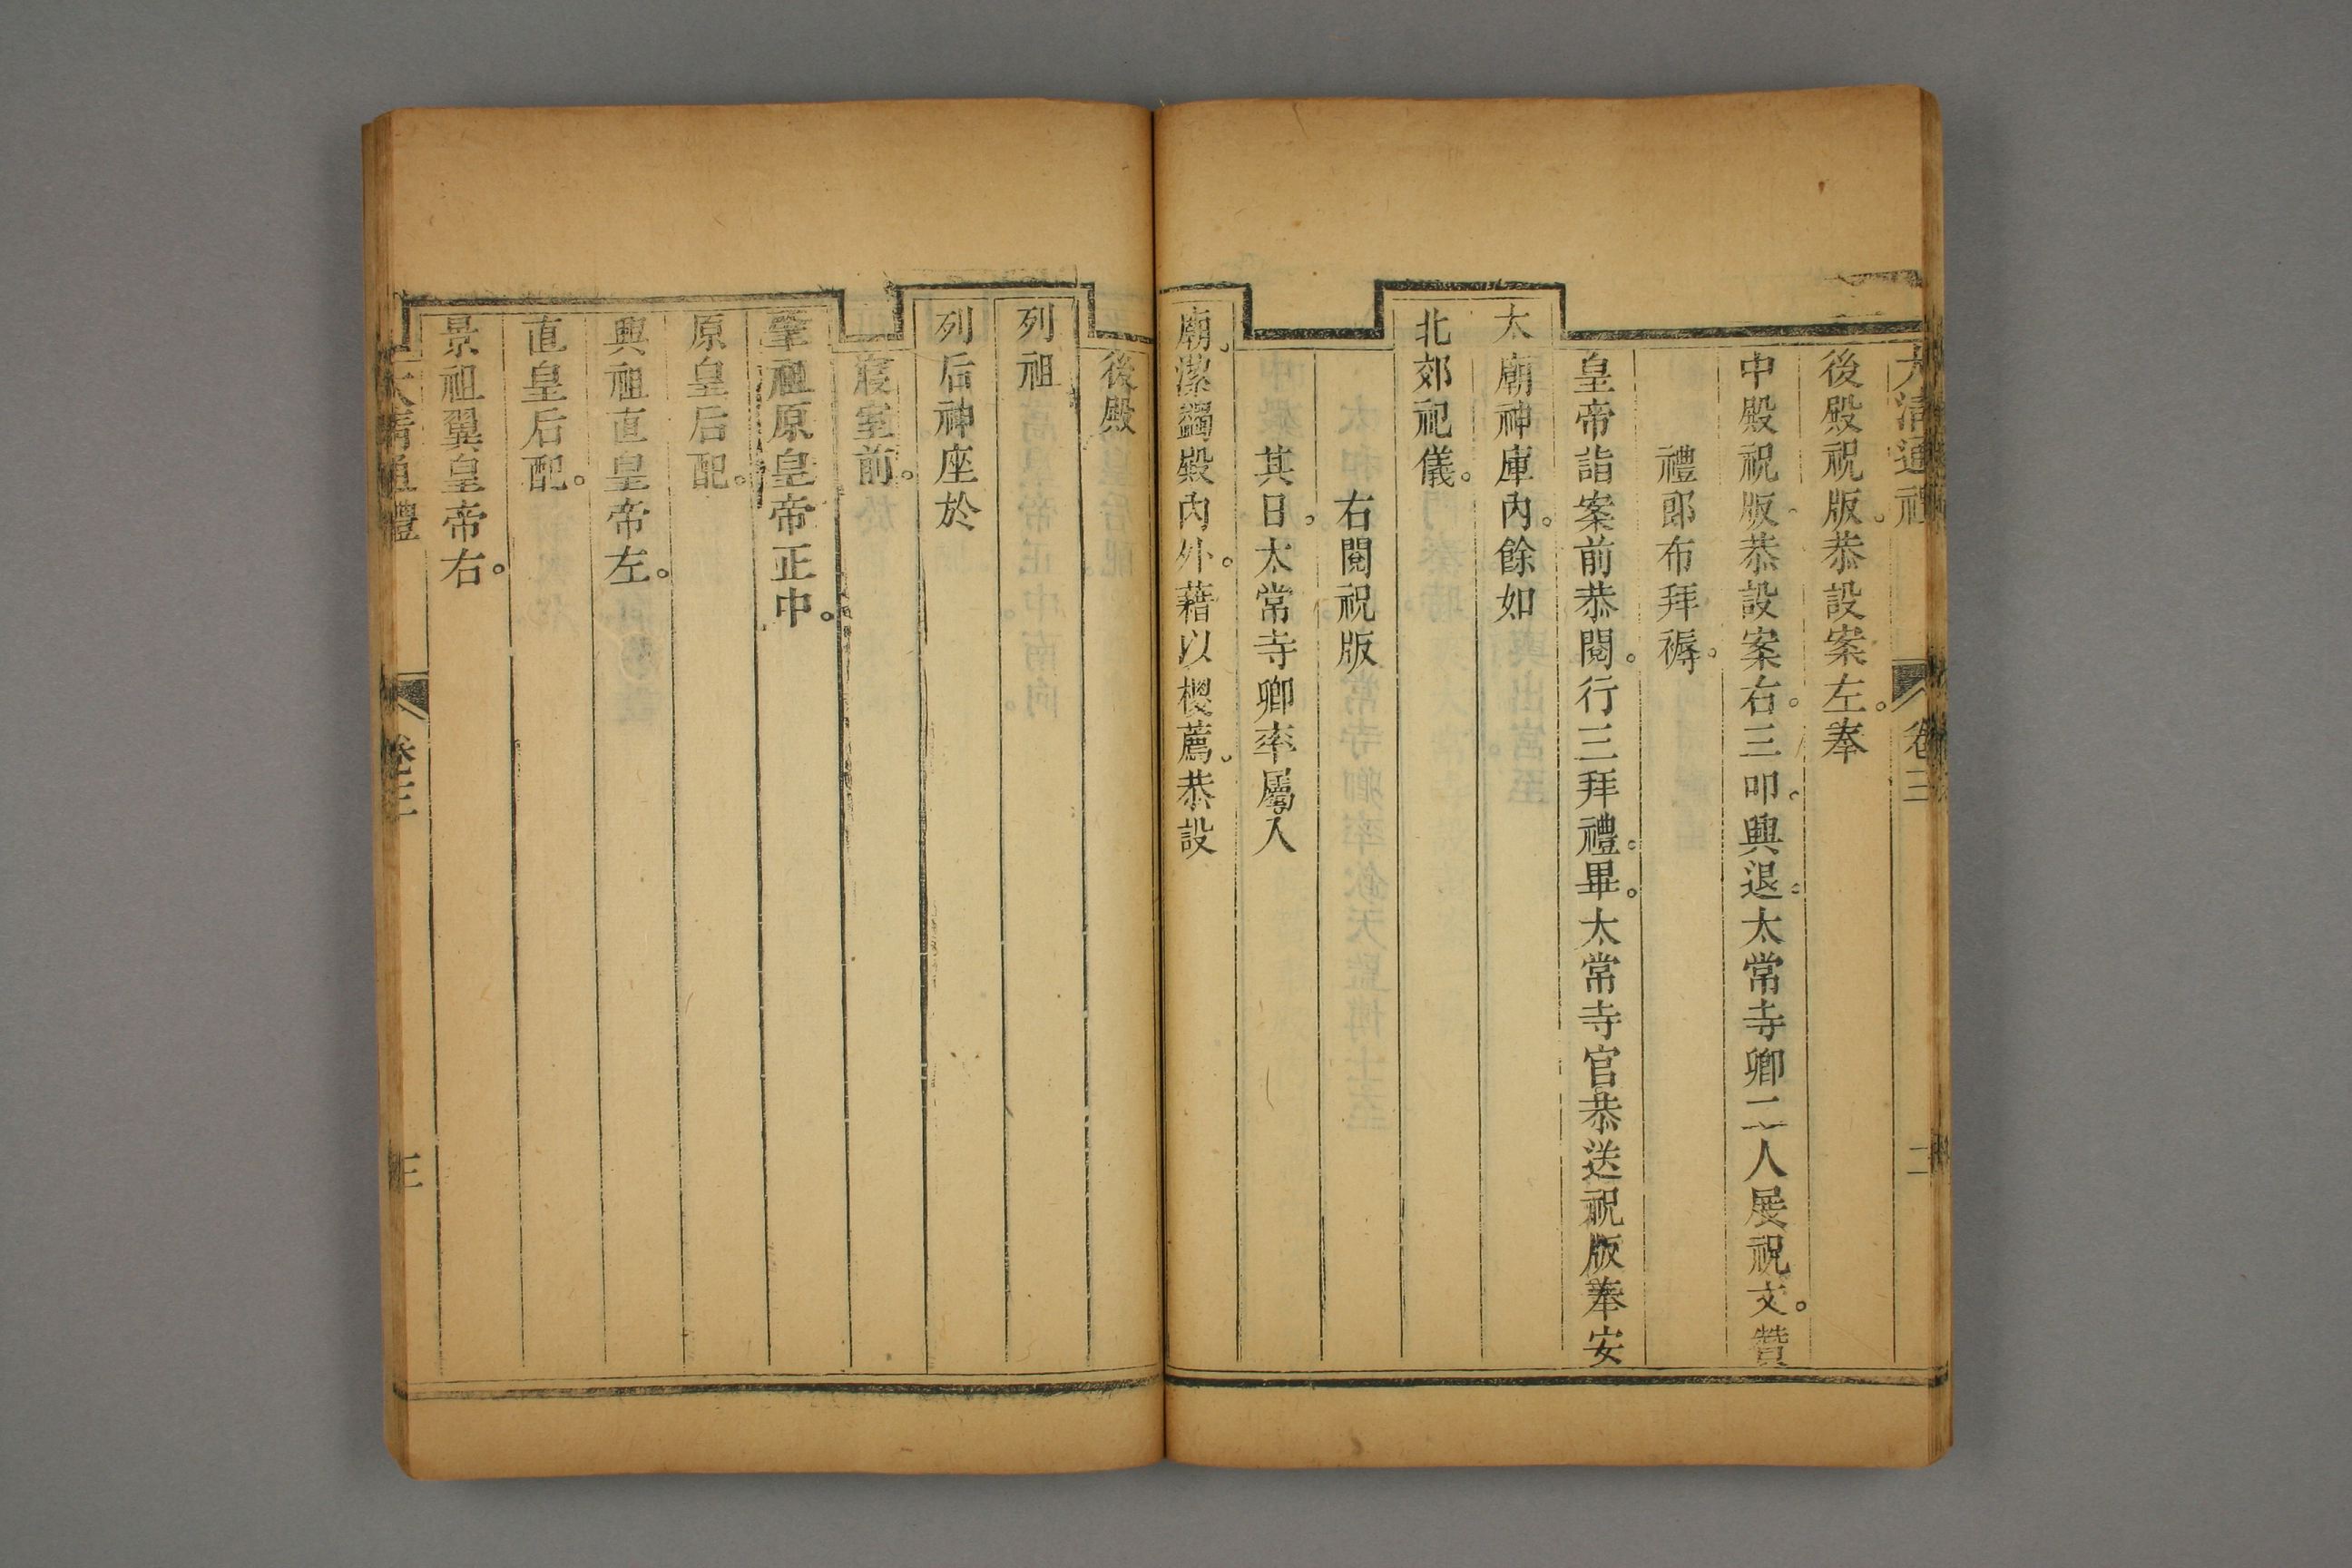 大清通禮 卷三 二
後殿祝版。恭設案左。奉
中殿祝版。恭設案右。三叩。興退。太常寺卿二人展祝文。贊
禮郎布拜褥。
皇帝詣案前恭閱。行三拜禮。畢。太常寺官恭送祝版奉安
太廟神庫內。餘如
北郊祀儀。
右閱祝版
其日。太常寺卿率屬入
廟。潔蠲殿內外。藉以椶薦。恭設
後殿
列祖
列后神座於
寢室前。
肇祖原皇帝正中。
原皇后配。
興祖直皇帝左。
直皇后配。
景祖翼皇帝右。
大清通禮 卷三 三